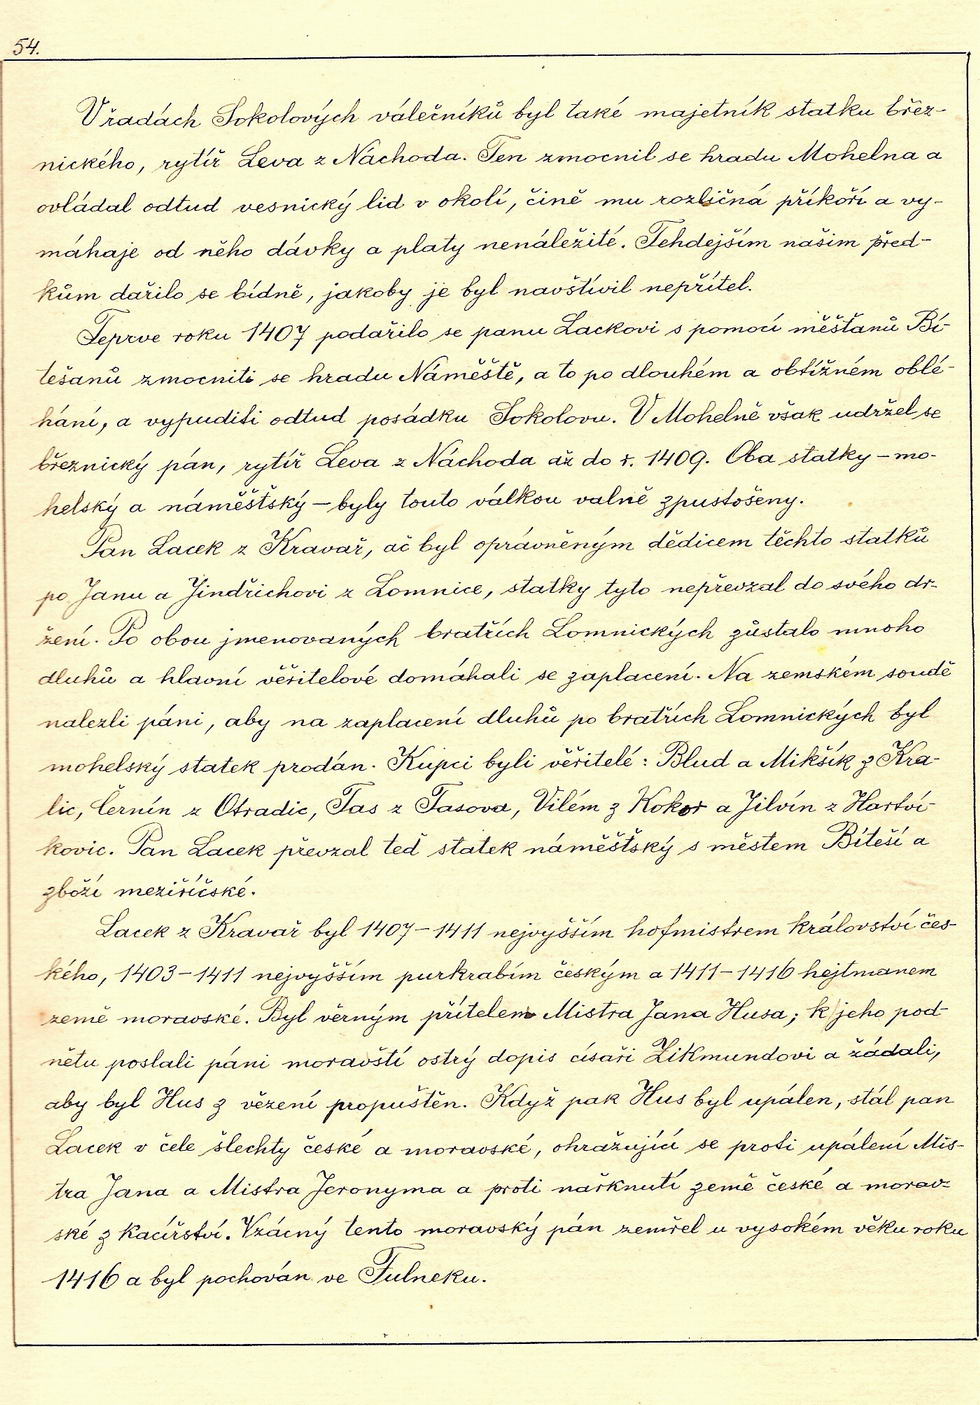 54.
Vřadách Sokolových válečníků byl také majetník statku břez-
nického, rytíř Leva z Náchoda. Ten zmocnil se hradu Mohelna a
ovládal odtud vesnický lid v okolí, čině mu rozličná příkoří a vy-
máhaje od něho dávky a platy nenáležité. Tehdejším našim před-
kům dařilo se bídně, jakoby je byl navštívil nepřítel.
Teprve roku 1407 podařilo se panu Lackovi s pomocí měšťanů Bí-
tešanů zmocniti se hradu Náměště, a to po dlouhém a obtížném oblé-
hání, a vypuditi odtud posádku Sokolovu. V Mohelně však udržel se
březnický pán, rytíř Leva z Náchoda až do r. 1409. Oba statky – mo-
helský a náměšťský – byly touto válkou valně zpustošeny.
Pan Lacek z Kravař, ač byl oprávněným dědicem těchto statků
po Janu a Jindřichovi z Lomnice, statky tyto nepřevzal do svého dr-
žení. Po obou jmenovaných bratřích Lomnických zůstalo mnoho
dluhů a hlavní věřitelové domáhali se zaplacení. Na zemském soudě
nalezli páni, aby na zaplacení dluhů po bratřích Lomnických byl
mohelský statek prodán. Kupci byli věřitelé: Blud a Mikšík z Kra-
lic, Černín z Otradic, Tas z Tasova, Vilém z Kokor a Jilvín z Hartví-
kovic. Pan Lacek převzal teď statek náměšťský s městem Bíteší a
zboží meziříčské.
Lacek z Kravař byl 1407–1411 nejvyšším hofmistrem království čes-
kého, 1403–1411 nejvyšším purkrabím českým a 1411–1416 hejtmanem
země moravské. Byl věrným přítelem Mistra Jana Husa; k jeho pod-
nětu poslali páni moravští ostrý dopis císaři Zikmundovi a žádali,
aby byl Hus z vězení propuštěn. Když pak Hus byl upálen, stál pan
Lacek v čele šlechty české a moravské, ohražující se proti upálení Mis-
tra Jana a Mistra Jeronyma a proti nařknutí země české a morav-
ské z kacířství. Vzácný tento moravský pán zemřel u vysokém věku roku
1416 a byl pochován ve Fulneku.